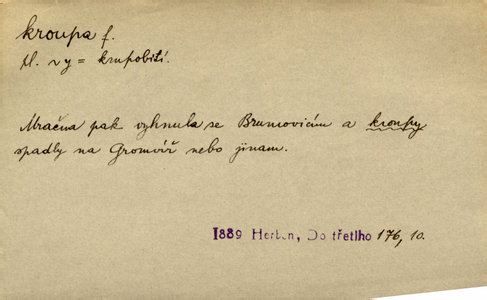 kroupa f.
pl. v y = krupobití.
Mračna pak vyhnula se Brumovicám a kroupy
spadly na Gromvíř nebo jinam.
1889 Herben, Do třetího 176, 10.